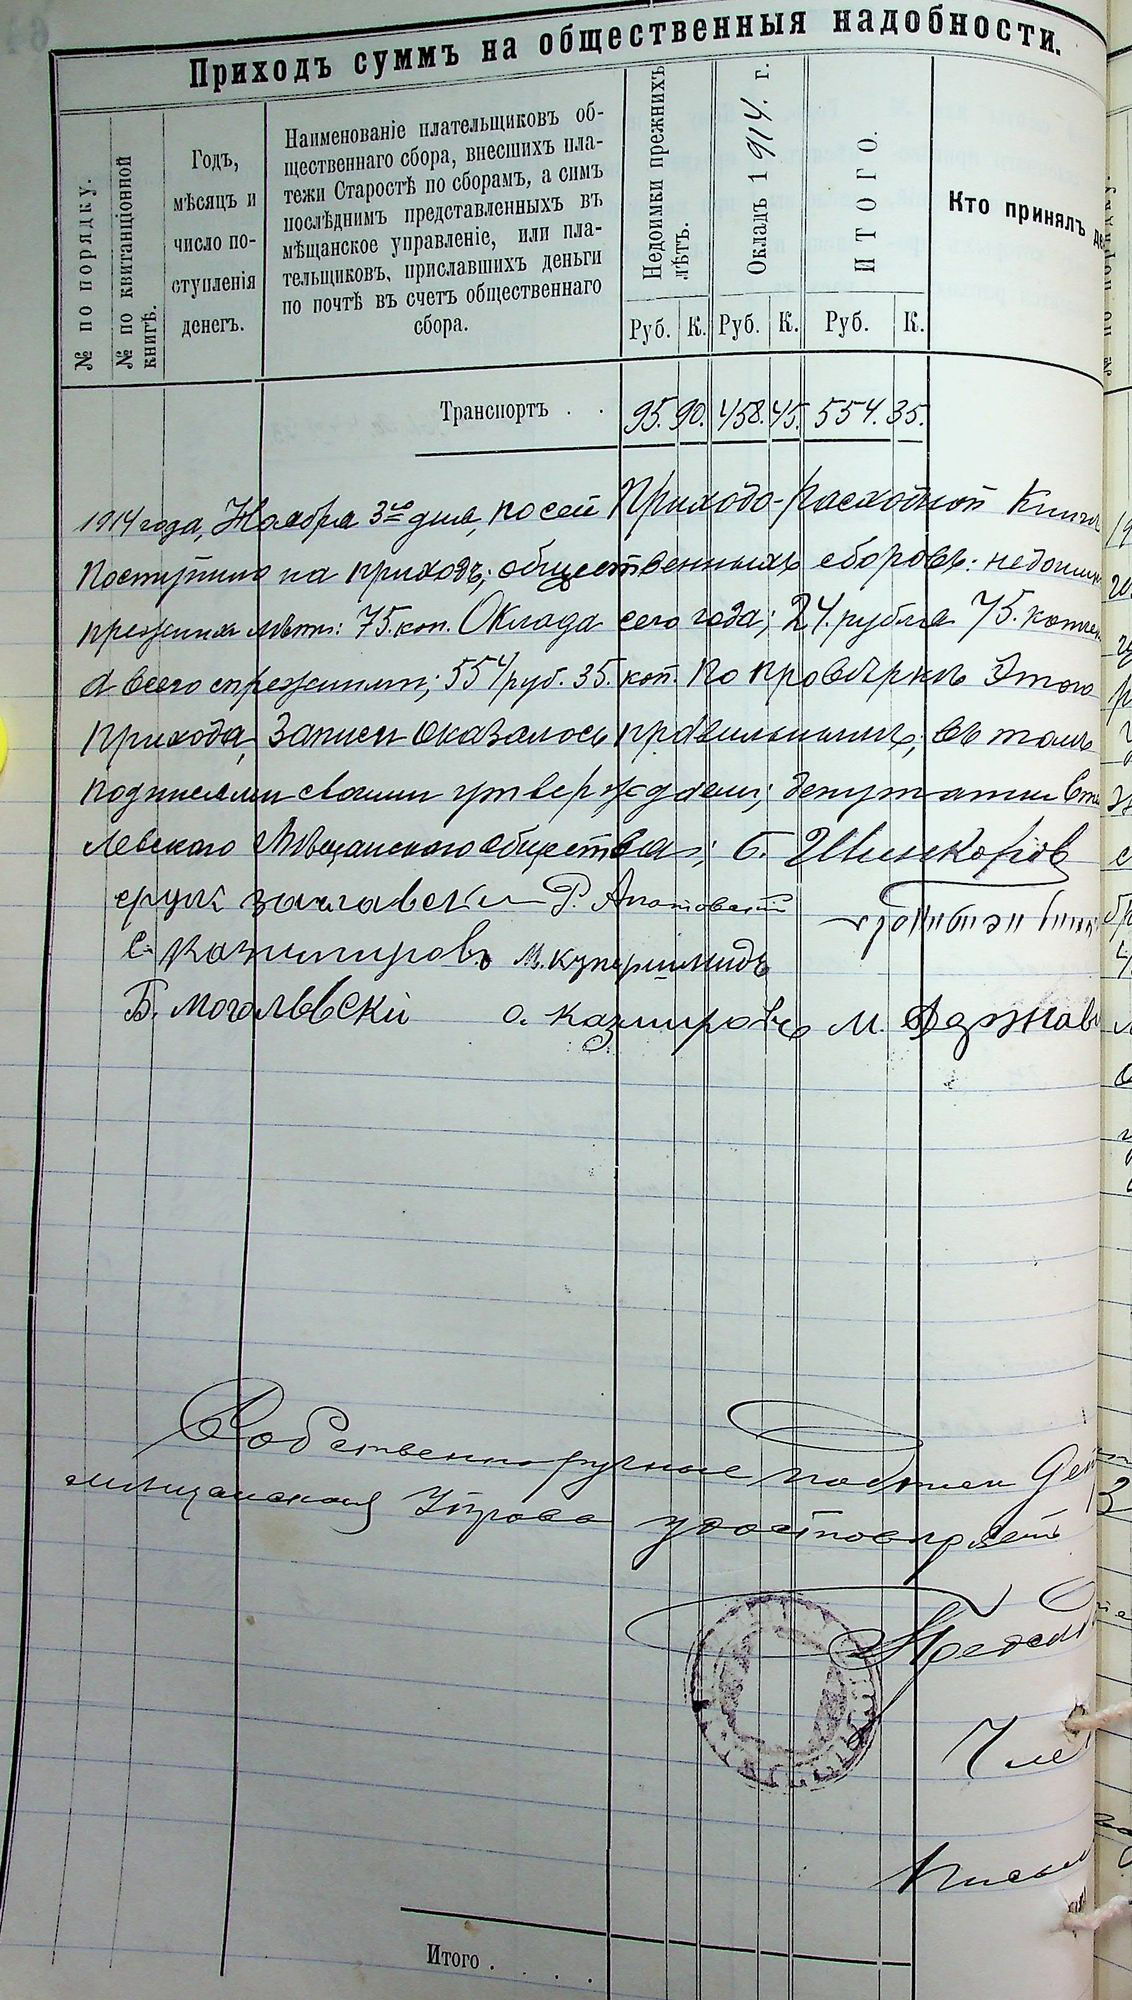 Приходъ суммъ на общественныя надобности.
№ по порядку.
№ по квитанціонной книгѣ.
Годъ,
мѣсяцъ и
число по-
ступленія
денегъ.
Наименованіе плательщиковъ об-
щественнаго сбора, внесшихъ пла-
тежи Старостѣ по сборамъ, а симъ
послѣднимъ представленныхъ въ
мѣщанское управленіе, или пла-
тельщиковъ, приславшихъ деньги
по почтѣ въ счетъ общественнаго
сбора.
Недоимки прежнихъ лѣтъ.
Окладъ 1914. г.
ИТОГО.
Кто принялъ
Руб. К. Руб. К. Руб. К.
Транспортъ . . 95. 90. 458. 45. 554. 35.
1914 года, Ноября 3го дня, по сей Приходо-Расходной Книгѣ
Поступило на приходъ; общественныхъ сборовъ: недоимки
прежнихъ лѣтъ: 75. коп. Оклада сего года; 24. рубля 75. копеек
а всего спрежними; 554 руб. 35. коп. По провѣркѣ этого
прихода, записи оказалось правильными, въ томъ
подписями своими утверждаем; депутаты
левского Мѣщанского общества; Б. Шинкоров
заславски Р.
С. Казимировъ М. Купершмидъ
Б. Могольвски о. Казмировъ М.
Собственноручные подписи
мѣщанская Управа удостовѣряетъ
Предсѣд
Чле
Письм
Итого . . . .